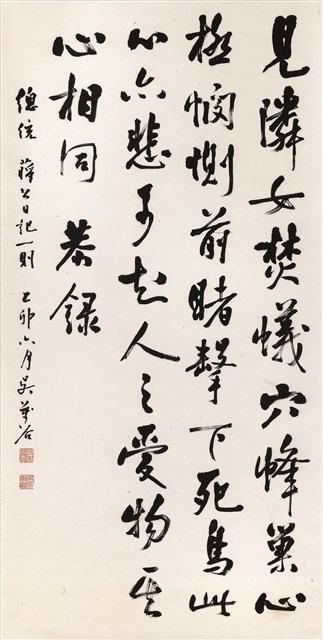 見隣女焚蟻穴蜂巢心
極憫惻前睹擊下死鳥此
心亦悲可知人之愛物其
心相同 恭錄
總統 蔣公日記一則 乙卯六月吳萬谷